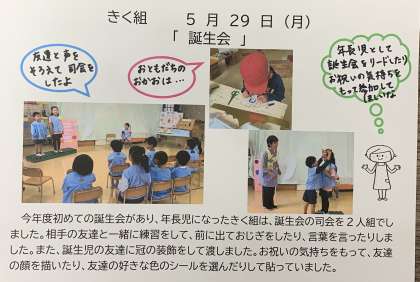 きく組　５ 月 ２９ 日 （月）
「 誕生会 」
友達と声を
そろえて 司会を
したよ
おともだちの
おかおは…
年長児として
誕生会をリードしたり
お祝いの気持ちを
もって参加して
ほしいな
今年度初めての誕生会があり、年長児になったきく組は、誕生会の司会を２人組でし
ました。相手の友達と一緒に練習をして、前に出ておじぎをしたり、言葉を言ったりしま
した。また、誕生児の友達に冠の装飾をして渡しました。お祝いの気持ちをもって、友達
の顔を描いたり、友達の好きな色のシールを選んだりして貼っていました。